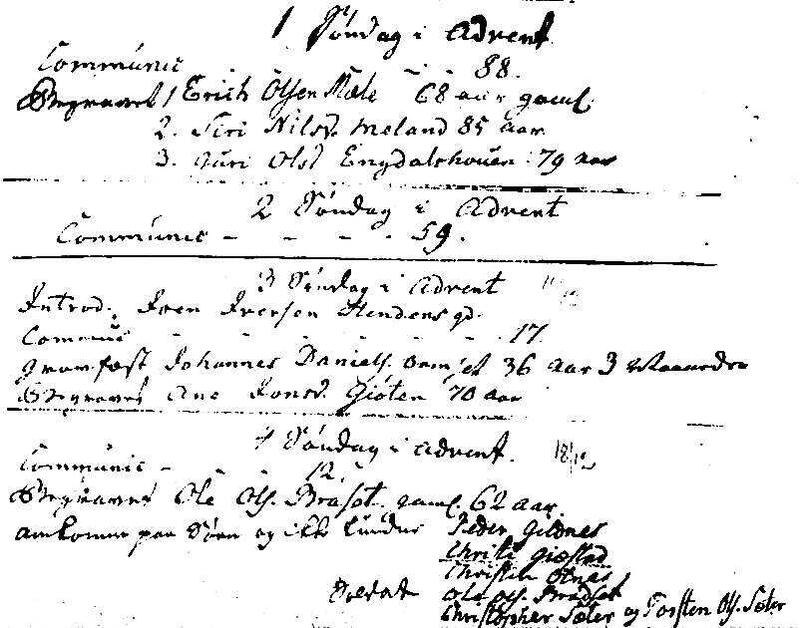 1 Søndag i Advent
Communic - - - 88.
Begravet 1 Erich Olsen Mæle 68 aar gaml.
2. Siri Nilsd. Meland 85 aar
3. Guri Olsd Engdalshouen 79 aar
2 Søndag i Advent
Communic - - - - 59.
3 Søndag i Advent
Introd. Iver Iversen gd.
Communic - - - - 17.
Johannes Daniels. 36 aar 3 Maaneder
Begravet Ane Jonsd. Gjøten 70 aar
4 Søndag i Advent. 18/12
Communic - - 12.
Begravet Ole Ols. Bradset. gaml. 62 aar.
ankomne paa Søen og ikke fundne Peder Gildnes
Christ Giæstad
Christen Otnes
Ole Ols. Bradset
Christopher Sæter og Torsten Ols. Sæter